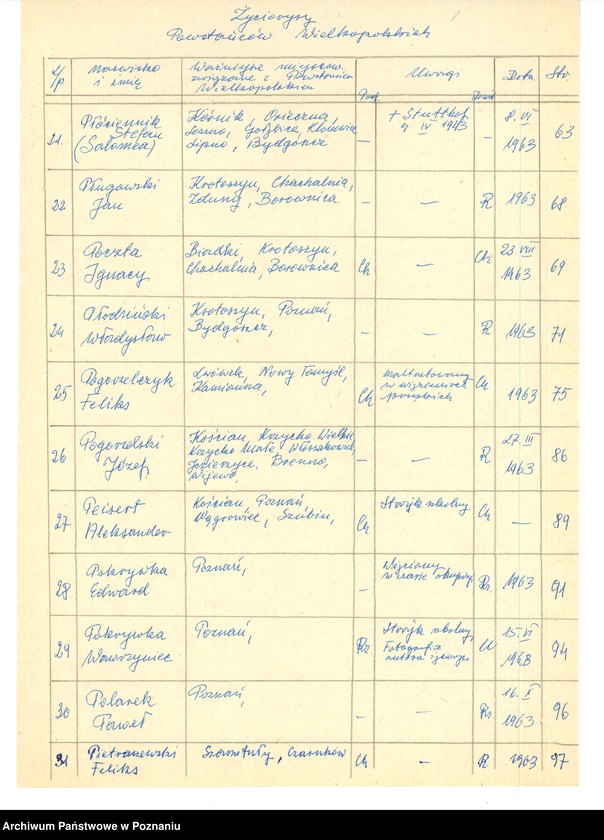 Życiorysy
Powstańców Wielkopolskich
L/p
Nazwisko i imię
Ważniejsze miejscow. związane z Powstaniem Wielkopolskim
Uwagi
Data
Str
21. Płóciennik Stefan (Salomea)
Kórnik, Osieczna,
Leszno,
Lipno, Bydgoszcz
–
+ Stutthof
4 IV 1943
–
8. VI
1963
63
22 Pługowski Jan
Krotoszyn, Chachalnia,
Zduny, Borownica
–
–
R
1963
68
23 Poczta Ignacy
Biadki, Krotoszyn,
Chachalnia, Borownica
Ch
–
Ch
23. VIII
1963
69
24 Włodzisław
Krotoszyn, Poznań,
Bydgoszcz,
–
–
R
1963
71
25 Pogorzelczyk Feliks
Lwówek, Nowy Tomyśl,
Kamionna,
Ch
maltretowany
w więzieniach
pruskich
Ch
1963
75
26 Pogorzelski Józef
Kościan, Krzycko Wielkie
Krzycko Małe, Włoszakowice,
Jezierzyce, Brenno,
Wijewo
–
–
R
27. III
1963
86
27 Peisert Aleksander
Kościan, Poznań
Wągrowiec, Szubin,
Ch
Strajk szkolny
Ch
–
89
28 Pokrywka Edward
Poznań,
–
Więziony
w czasie okupacji
1963
91
29 Pokrywka Wawrzyniec
Poznań,
Strajk szkolny,
Fotografia
autora życiorysu
15. VI
1968
94
30 Polarek Paweł
Poznań,
–
–
16. X
1963
96
31 Pietraszewski Feliks
Szamotuły, Czarnków
Ch
–
R
1963
97
Archiwum Państwowe w Poznaniu